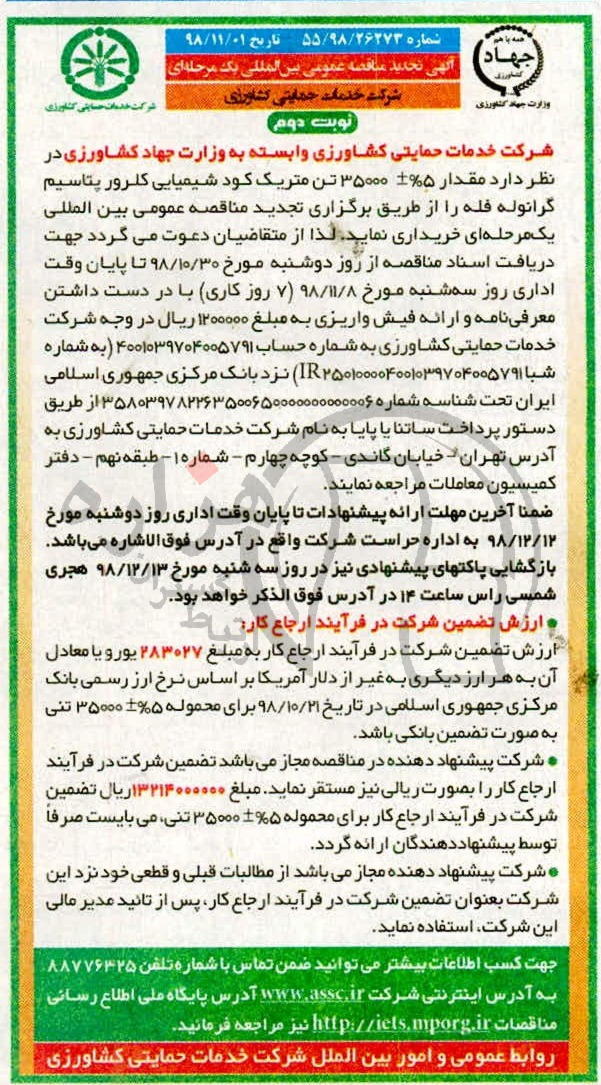 همه با هم
جهاد
کشاورزی
وزارت جهاد کشاورزی
شماره ۵۵/۹۸/۲۶۲۷۳ تاریخ ۹۸/۱۱/۰۱
آگهی تجدید مناقصه عمومی بین‌المللی یک مرحله‌ای
شرکت خدمات حمایتی کشاورزی
شرکت خدمات حمایتی کشاورزی
نوبت دوم
شرکت خدمات حمایتی کشاورزی وابسته به وزارت جهاد کشاورزی در
نظر دارد مقدار ۵%± ۳۵۰۰۰ تن متریک کود شیمیایی کلرور پتاسیم
گرانوله فله را از طریق برگزاری تجدید مناقصه عمومی بین المللی
یک‌مرحله‌ای خریداری نماید. لذا از متقاضیان دعوت می گردد جهت
دریافت اسناد مناقصه از روز دوشنبه مورخ ۹۸/۱۰/۳۰ تا پایان وقت
اداری روز سه‌شنبه مورخ ۹۸/۱۱/۸ (۷ روز کاری) با در دست داشتن
معرفی‌نامه و ارائه فیش واریزی به مبلغ ۱۲۰۰۰۰۰ ریال در وجه شرکت
خدمات حمایتی کشاورزی به شماره حساب ۴۰۰۱۰۳۹۷۰۴۰۰۵۷۹۱ (به شماره
شبا IR۲۵۰۱۰۰۰۰۴۰۰۱۰۳۹۷۰۴۰۰۵۷۹۱) نزد بانک مرکزی جمهوری اسلامی
ایران تحت شناسه شماره ۳۵۸۰۳۹۷۸۲۲۶۳۵۰۰۶۵۰۰۰۰۰۰۰۰۰۰۰۰۶ از طریق
دستور پرداخت ساتنا یا پایا به نام شرکت خدمات حمایتی کشاورزی به
آدرس تهران - خیابان گاندی - کوچه چهارم - شماره ۱ - طبقه نهم - دفتر
کمیسیون معاملات مراجعه نمایند.
ضمنا آخرین مهلت ارائه پیشنهادات تا پایان وقت اداری روز دوشنبه مورخ
۹۸/۱۲/۱۲ به اداره حراست شرکت واقع در آدرس فوق‌الاشاره می‌باشد.
بازگشایی پاکتهای پیشنهادی نیز در روز سه شنبه مورخ ۹۸/۱۲/۱۳ هجری
شمسی راس ساعت ۱۴ در آدرس فوق الذکر خواهد بود.
• ارزش تضمین شرکت در فرآیند ارجاع کار:
ارزش تضمین شرکت در فرآیند ارجاع کار به مبلغ ۲۸۳۰۲۷ یورو یا معادل
آن به هر ارز دیگری به غیر از دلار آمریکا بر اساس نرخ ارز رسمی بانک
مرکزی جمهوری اسلامی در تاریخ ۹۸/۱۰/۲۱ برای محموله ۵%± ۳۵۰۰۰ تنی
به صورت تضمین بانکی باشد.
• شرکت پیشنهاد دهنده در مناقصه مجاز می باشد تضمین شرکت در فرآیند
ارجاع کار را بصورت ریالی نیز مستقر نماید. مبلغ ۱۳۲۱۴۰۰۰۰۰۰ ریال تضمین
شرکت در فرآیند ارجاع کار برای محموله ۵%± ۳۵۰۰۰ تنی، می بایست صرفاً
توسط پیشنهاددهندگان ارائه گردد.
• شرکت پیشنهاد دهنده مجاز می باشد از مطالبات قبلی و قطعی خود نزد این
شرکت بعنوان تضمین شرکت در فرآیند ارجاع کار، پس از تائید مدیر مالی
این شرکت، استفاده نماید.
جهت کسب اطلاعات بیشتر می توانید ضمن تماس با شماره تلفن ۸۸۷۷۶۳۲۵
به آدرس اینترنتی شرکت www.assc.ir آدرس پایگاه ملی اطلاع رسانی
مناقصات http://iets.mporg.ir نیز مراجعه فرمائید.
روابط عمومی و امور بین الملل شرکت خدمات حمایتی کشاورزی